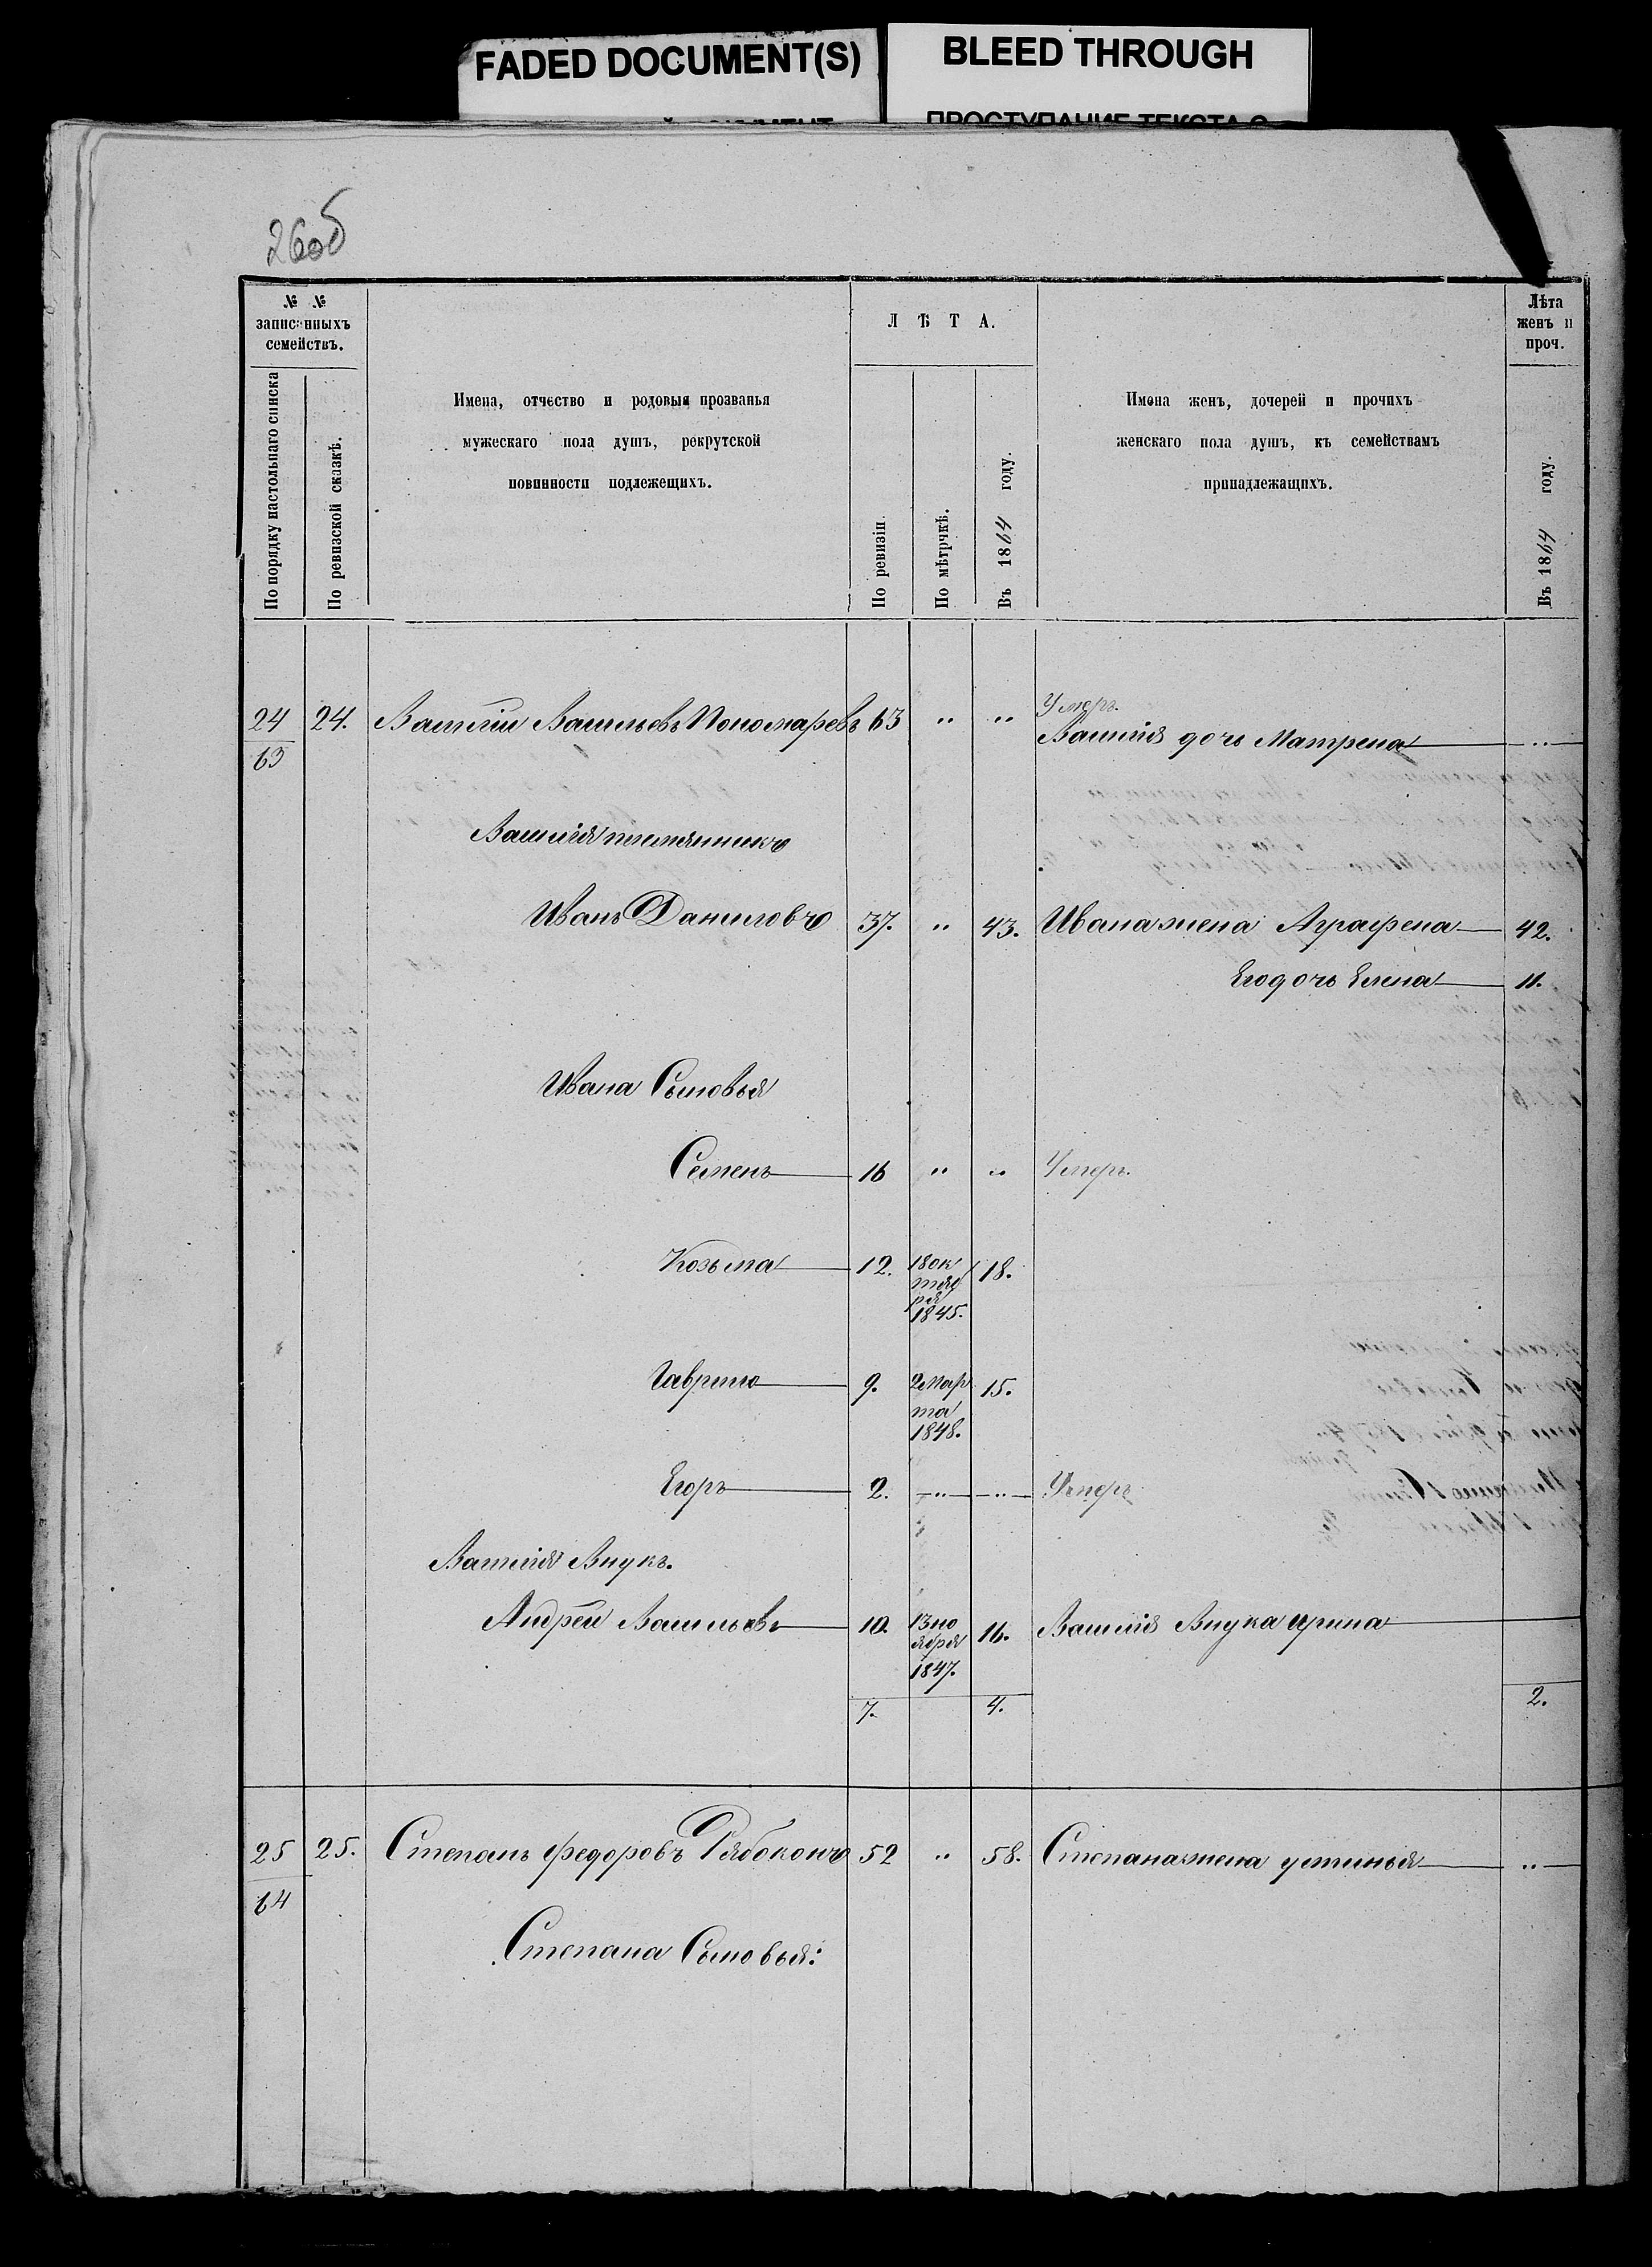 FADED DOCUMENT(S)
BLEED THROUGH
ПРОСТУПАНИЕ ТЕКСТА
26об
№ №
записанныхъ
семействъ.
По порядку настольнаго списка
По ревизской сказкѣ.
Имена, отчество и родовыя прозванья
мужескаго пола душъ, рекрутской
повинности подлежещихъ.
ЛѢТА.
По ревизіи.
По мѣтрчкѣ.
Въ 1864 году.
Имена женъ, дочерей и прочихъ
женскаго пола душъ, къ семействамъ
принадлежащихъ.
Лѣта
женъ и
проч.
Въ 1864 году.
24 24. Василій Васильевъ Пономаревъ 63 " " Умеръ.
63 Василія дочь Матрена "
Василія племянникъ
Иванъ Даниловъ 37. " 43. Ивана жена Аграфена 42.
Его дочь Елена 11.
Ивана Сыновья
Семенъ 16 " " Умеръ.
Козьма 12. 18 ок 18.
тяб
ря
1845.
Гаврило 9. 2 Мар 15.
та
1848.
Егоръ 2. " " Умеръ
Василія Внукъ.
Андрей Васильевъ 10. 13 но 16. Василія Внука ирина
ября
1847.
7. 4. 2.
25 25. Степанъ федоровъ Рябоконъ 52 " 58. Степана жена устинья "
64
Степана Сыновья: